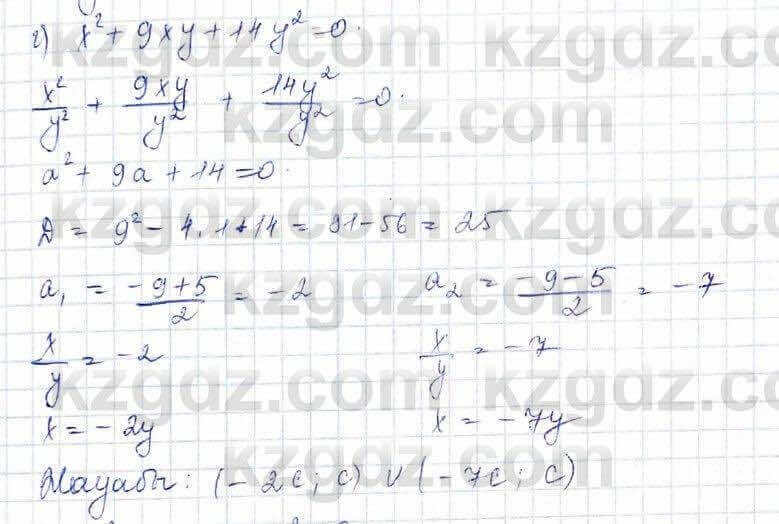 г) x² + 9xy + 14y² = 0.
x²/y² + 9xy/y² + 14y²/y² = 0.
a² + 9a + 14 = 0.
D = 9² - 4·1·14 = 81 - 56 = 25
a₁ = (-9+5)/2 = -2    a₂ = (-9-5)/2 = -7
x/y = -2    x/y = -7
x = -2y    x = -7y
Жауабы: (-2c; c) ∪ (-7c; c)
kzgdz.com